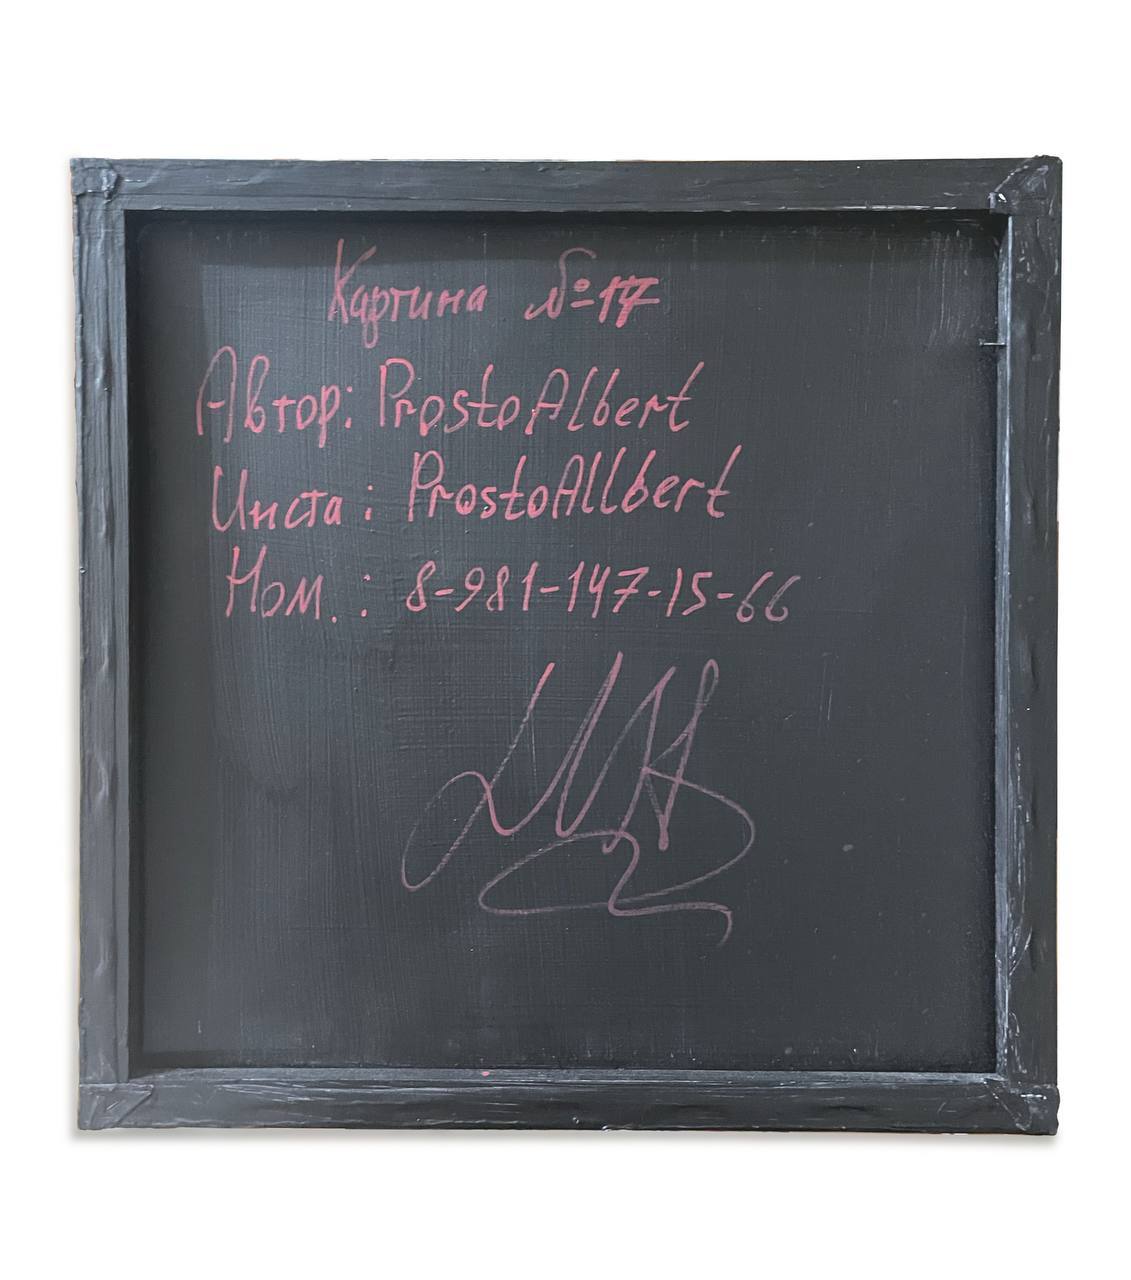 Картина №17
Автор: ProstoAlbert
Инста: ProstoAllbert
Ном.: 8-981-147-15-66